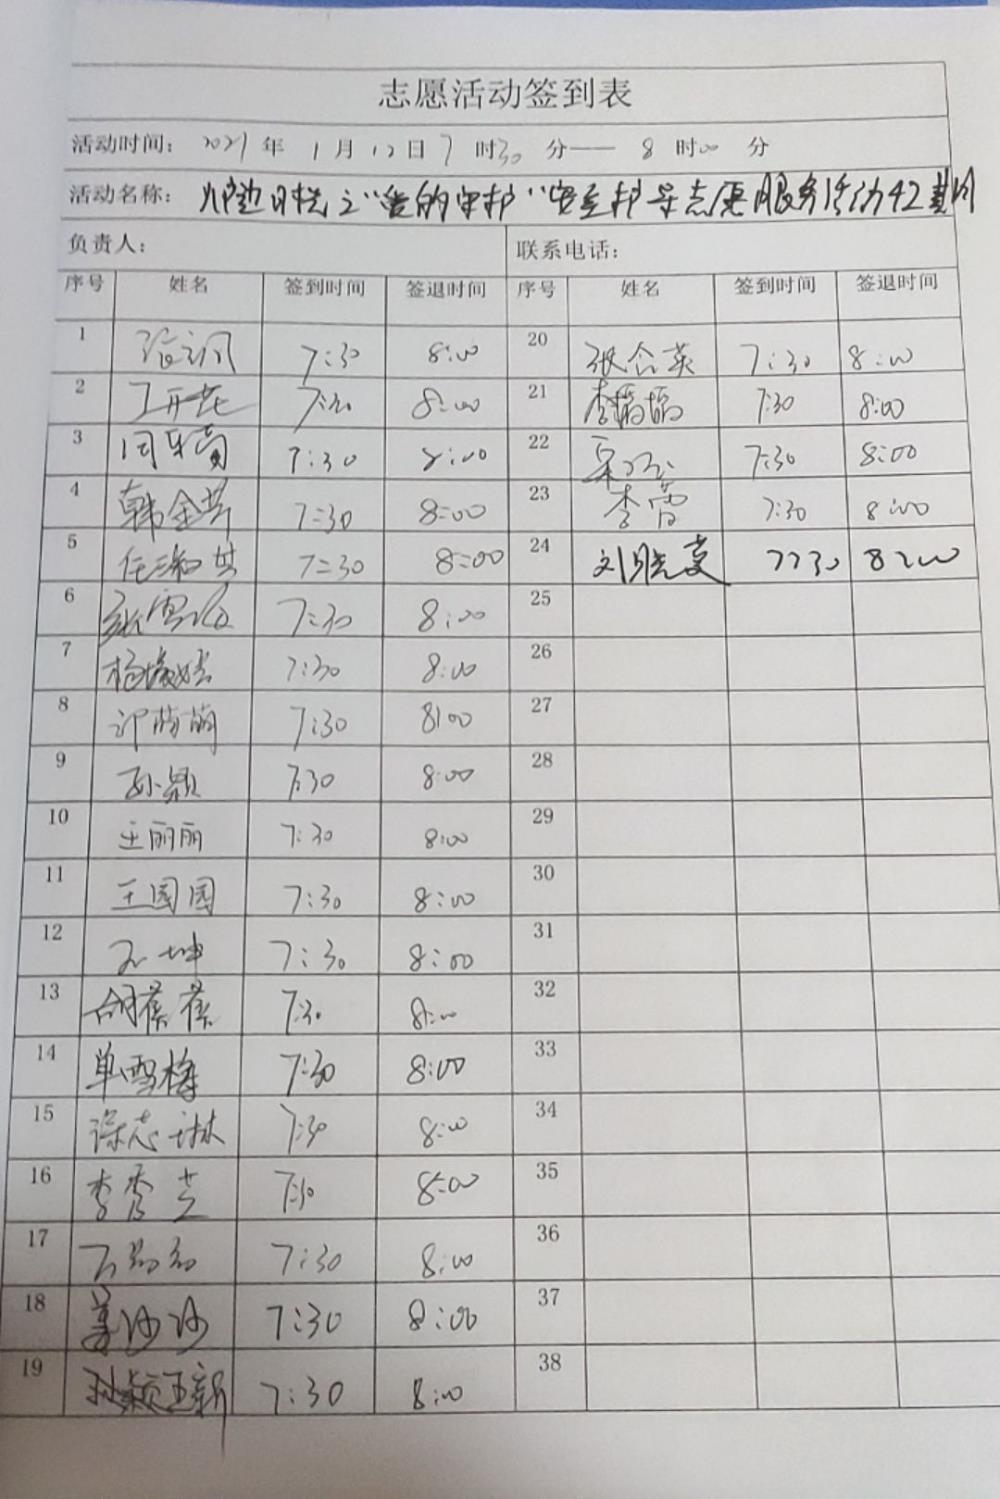 志愿活动签到表
活动时间: 2021年 1月12日7时30分——8时00分
活动名称: 之"爱的守护"安全护导志愿服务活动42
负责人:
联系电话:
序号 姓名 签到时间 签退时间 序号 姓名 签到时间 签退时间
1 7:30 8:00 20 张合英 7:30 8:00
2 丁开花 7:30 8:00 21 李娟娟 7:30 8:00
3 7:30 8:00 22 7:30 8:00
4 韩金芳 7:30 8:00 23 李雷 7:30 8:00
5 7:30 8:00 24 刘晓莫 7:30 8:00
6 7:30 8:00 25
7 7:30 8:00 26
8 萌萌 7:30 8:00 27
9 孙颖 7:30 8:00 28
10 王丽丽 7:30 8:00 29
11 王园园 7:30 8:00 30
12 坤 7:30 8:00 31
13 胡蓓蓓 7:30 8:00 32
14 单雪梅 7:30 8:00 33
15 徐志琳 7:30 8:00 34
16 李秀芝 7:30 8:00 35
17 7:30 8:00 36
18 姜沙沙 7:30 8:00 37
19 王新 7:30 8:00 38